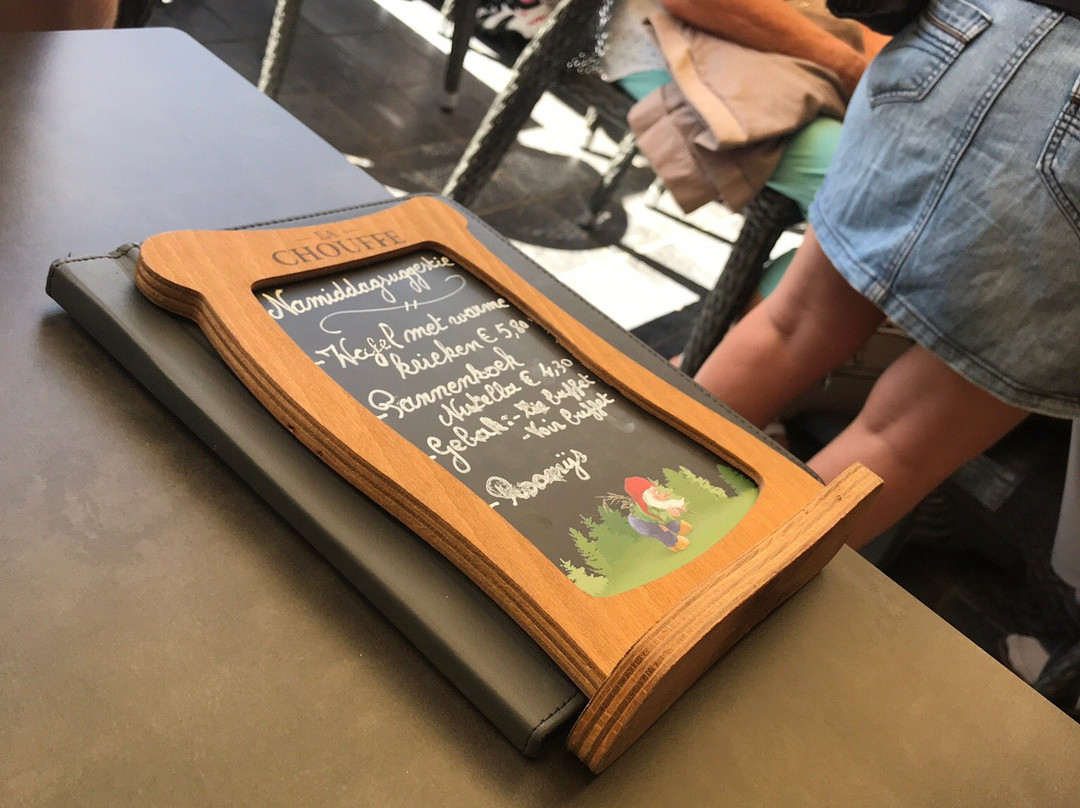 LA
CHOUFFE
Namiddagsuggestie
- Wafel met warme
krieken € 5,80
- Pannenkoek
Nutella € 4,30
- Gebak: - Zie buffet
- Voir buffet
- Roomijs